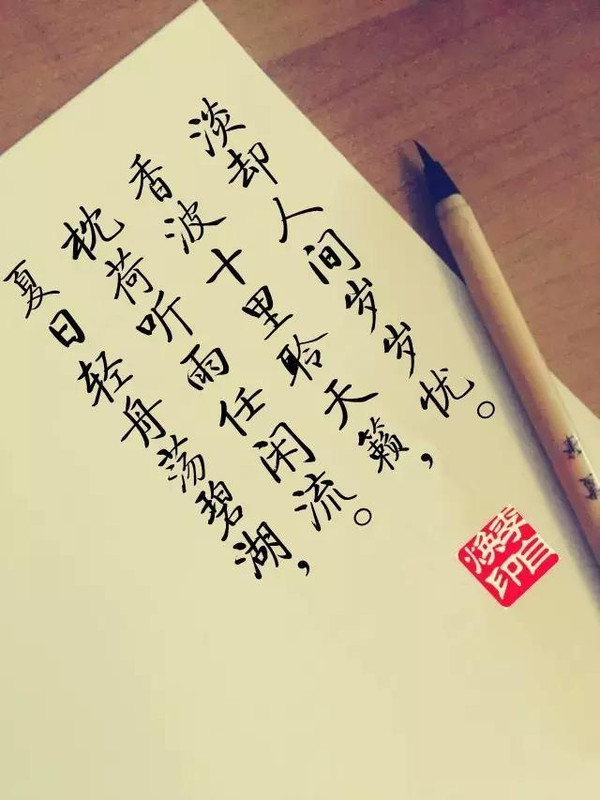 夏日轻舟荡碧湖,
枕荷听雨任闲流。
香波十里聆天籁,
淡却人间岁岁忧。
李自
焕印